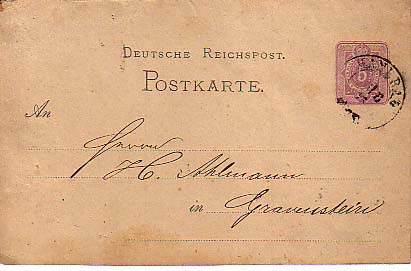 DEUTSCHE REICHSPOST.
POSTKARTE.
5
An
Herrn
H. Ahlmann
in Gravenstein